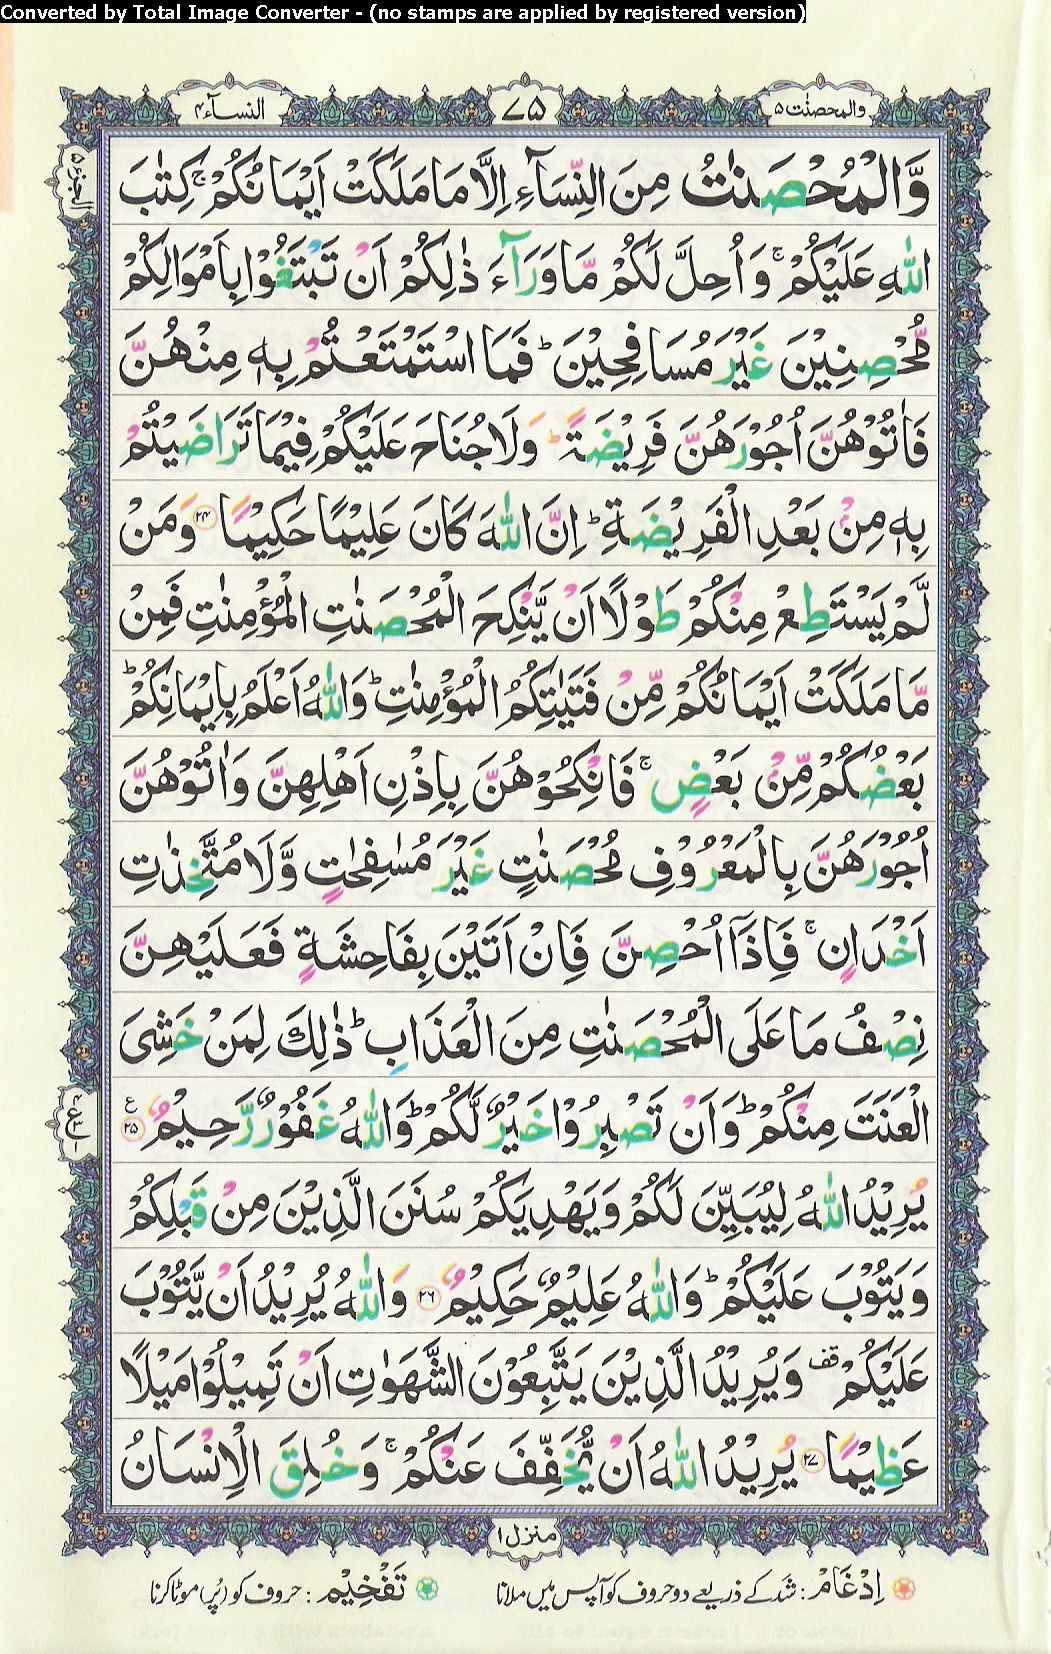 Converted by Total Image Converter - (no stamps are applied by registered version)
والمحصنٰت ۵
۷۵
النسآء ۴
الجزء ۵
وَّالْمُحْصَنٰتُ مِنَ النِّسَآءِ اِلَّا مَا مَلَكَتْ اَيْمَانُكُمْ ۚ كِتٰبَ
اللّٰهِ عَلَيْكُمْ ۚ وَ اُحِلَّ لَكُمْ مَّا وَرَآءَ ذٰلِكُمْ اَنْ تَبْتَغُوْا بِاَمْوَالِكُمْ
مُّحْصِنِيْنَ غَيْرَ مُسَافِحِيْنَ ؕ فَمَا اسْتَمْتَعْتُمْ بِهٖ مِنْهُنَّ
فَاٰتُوْهُنَّ اُجُوْرَهُنَّ فَرِيْضَةً ؕ وَلَا جُنَاحَ عَلَيْكُمْ فِيْمَا تَرَاضَيْتُمْ
بِهٖ مِنْۢ بَعْدِ الْفَرِيْضَةِ ؕ اِنَّ اللّٰهَ كَانَ عَلِيْمًا حَكِيْمًا ﴿۲۴﴾ وَمَنْ
لَّمْ يَسْتَطِعْ مِنْكُمْ طَوْلًا اَنْ يَّنْكِحَ الْمُحْصَنٰتِ الْمُؤْمِنٰتِ فَمِنْ
مَّا مَلَكَتْ اَيْمَانُكُمْ مِّنْ فَتَيٰتِكُمُ الْمُؤْمِنٰتِ ؕ وَاللّٰهُ اَعْلَمُ بِاِيْمَانِكُمْ ؕ
بَعْضُكُمْ مِّنْۢ بَعْضٍ ۚ فَانْكِحُوْهُنَّ بِاِذْنِ اَهْلِهِنَّ وَاٰتُوْهُنَّ
اُجُوْرَهُنَّ بِالْمَعْرُوْفِ مُحْصَنٰتٍ غَيْرَ مُسٰفِحٰتٍ وَّلَا مُتَّخِذٰتِ
اَخْدَانٍ ۚ فَاِذَآ اُحْصِنَّ فَاِنْ اَتَيْنَ بِفَاحِشَةٍ فَعَلَيْهِنَّ
نِصْفُ مَا عَلَى الْمُحْصَنٰتِ مِنَ الْعَذَابِ ؕ ذٰلِكَ لِمَنْ خَشِىَ
الْعَنَتَ مِنْكُمْ ؕ وَ اَنْ تَصْبِرُوْا خَيْرٌ لَّكُمْ ؕ وَاللّٰهُ غَفُوْرٌ رَّحِيْمٌ ﴿۲۵﴾
يُرِيْدُ اللّٰهُ لِيُبَيِّنَ لَكُمْ وَيَهْدِيَكُمْ سُنَنَ الَّذِيْنَ مِنْ قَبْلِكُمْ
وَيَتُوْبَ عَلَيْكُمْ ؕ وَاللّٰهُ عَلِيْمٌ حَكِيْمٌ ﴿۲۶﴾ وَاللّٰهُ يُرِيْدُ اَنْ يَّتُوْبَ
عَلَيْكُمْ قف وَيُرِيْدُ الَّذِيْنَ يَتَّبِعُوْنَ الشَّهَوٰتِ اَنْ تَمِيْلُوْا مَيْلًا
عَظِيْمًا ﴿۲۷﴾ يُرِيْدُ اللّٰهُ اَنْ يُّخَفِّفَ عَنْكُمْ ۚ وَخُلِقَ الْاِنْسَانُ
منزل ۱
اِدْغَامْ : شدّ کے ذریعے دو حروف کو آپس میں ملانا
تَفْخِيْم : حروف کو (پُر) موٹا کرنا